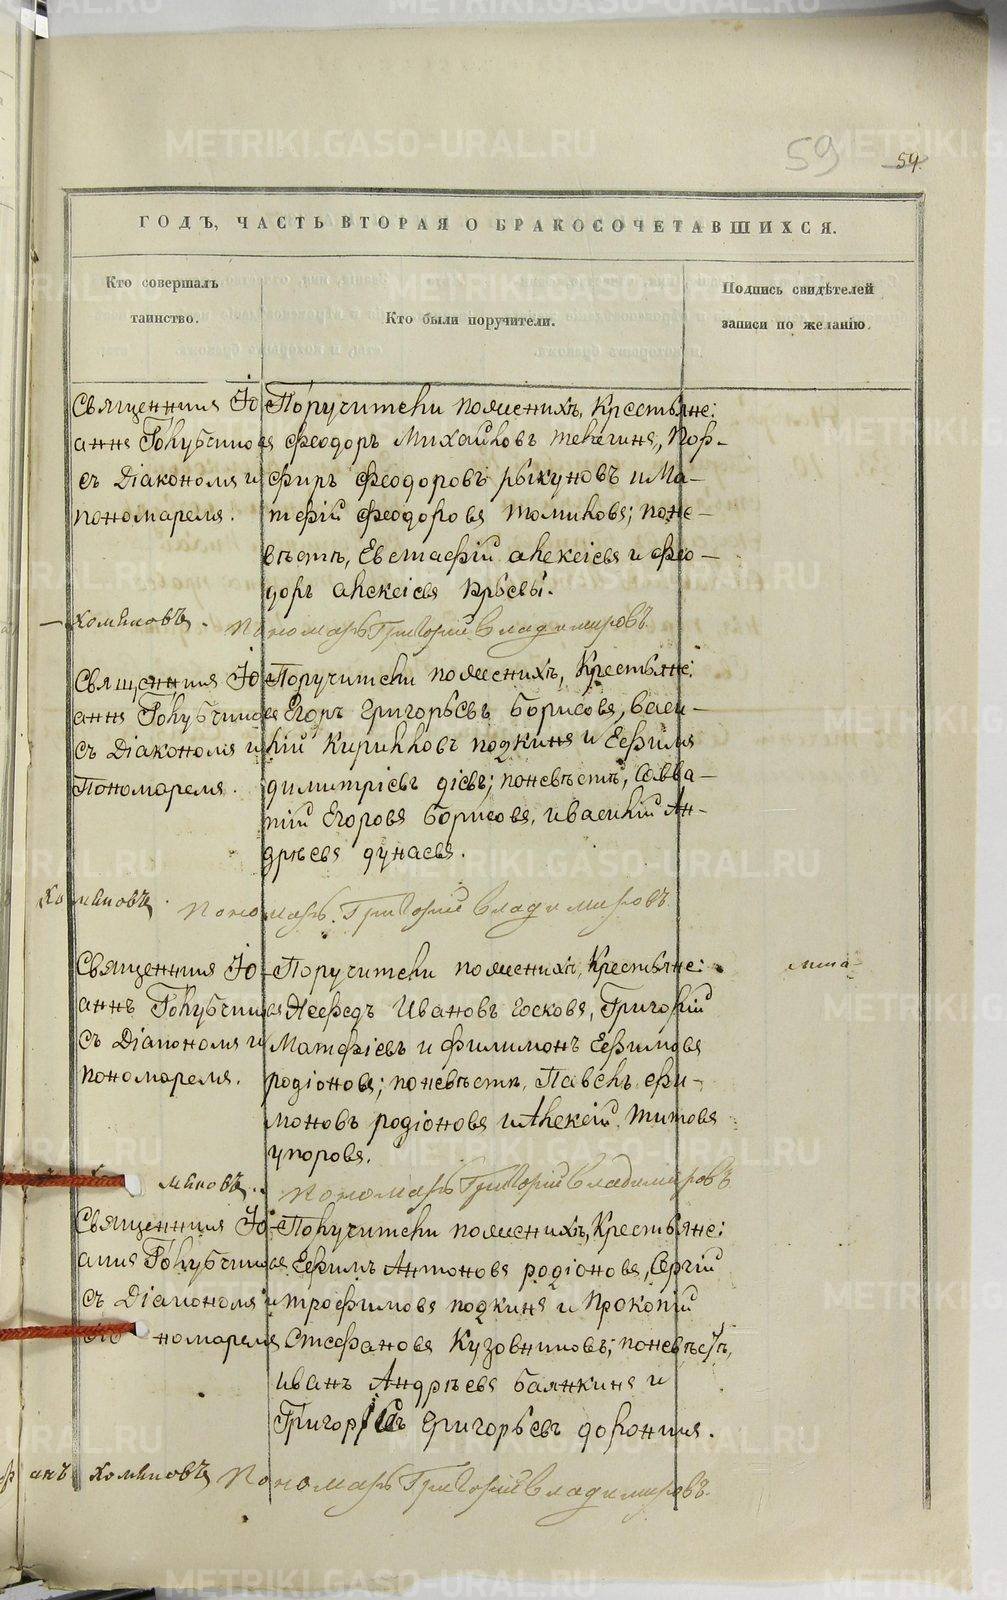 METRIKI.GASO-URAL.RU
59
54.
ГОДЪ, ЧАСТЬ ВТОРАЯ О БРАКОСОЧЕТАВШИХСЯ.
Кто совершалъ таинство.
Кто были поручители.
Подпись свидѣтелей записи по желанію.
Священникъ Іо
аннъ Голубчиковъ
съ Діакономъ и
пономаремъ.
Поручители по женихѣ, Крестьяне:
Феодоръ Михайловъ
фиръ Феодоровъ рыкуновъ и Ма-
тфій Феодоровъ Томиловъ; по не-
вѣстѣ, Евстафій Алексіевъ и Фео-
доръ Алексіевъ
Пономарь Григорій Владимировъ
Священникъ Іо
аннъ Голубчиковъ
съ Діакономъ и
Пономаремъ.
Поручители по женихѣ, Крестьяне:
Егоръ Григорьевъ Борисовъ, Васи-
лій Кириловъ подкинъ и Ефимъ
димитріевъ дiевъ; по невѣстѣ, Савва-
тій Егоровъ Борисовъ, и Василій Ан-
дрѣевъ дунаевъ.
Пономарь Григорій Владимировъ
Священникъ Іо
аннъ Голубчиковъ
съ Діакономъ и
пономаремъ.
Поручители по женихѣ, Крестьяне:
Ивановъ Григорій
Матфіевъ и Филимонъ Ефимовъ
родіоновъ; по невѣстѣ, Павелъ Фи-
моновъ родіоновъ и Алексій Титовъ
упоровъ.
Пономарь Григорій Владимировъ
Священникъ Іо
аннъ Голубчиковъ
съ Діакономъ и
пономаремъ
Поручители по женихѣ, Крестьяне:
Ефимъ Антоновъ родіоновъ, Сергій
Трофимовъ подкинъ и Прокопій
Стефановъ Кузовниковъ; по невѣстѣ,
Иванъ Андрѣевъ баянкинъ и
Григорій Григорьевъ доронинъ.
Пономарь Григорій Владимировъ.